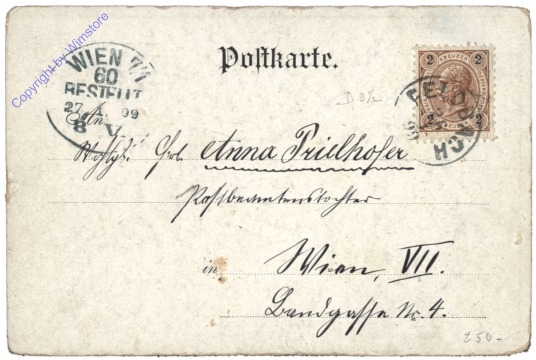 Copyright by Wimstore
WIEN 7/1
60
BESTELLT
27 1 99
8 V
Postkarte.
2 2
2 2
FELDBACH
D 9½
An
Wohlgb. Frl. Anna Prielhofer
Postbeamtenstochter
in Wien, VII.
Bandgasse Nr. 4.
250-